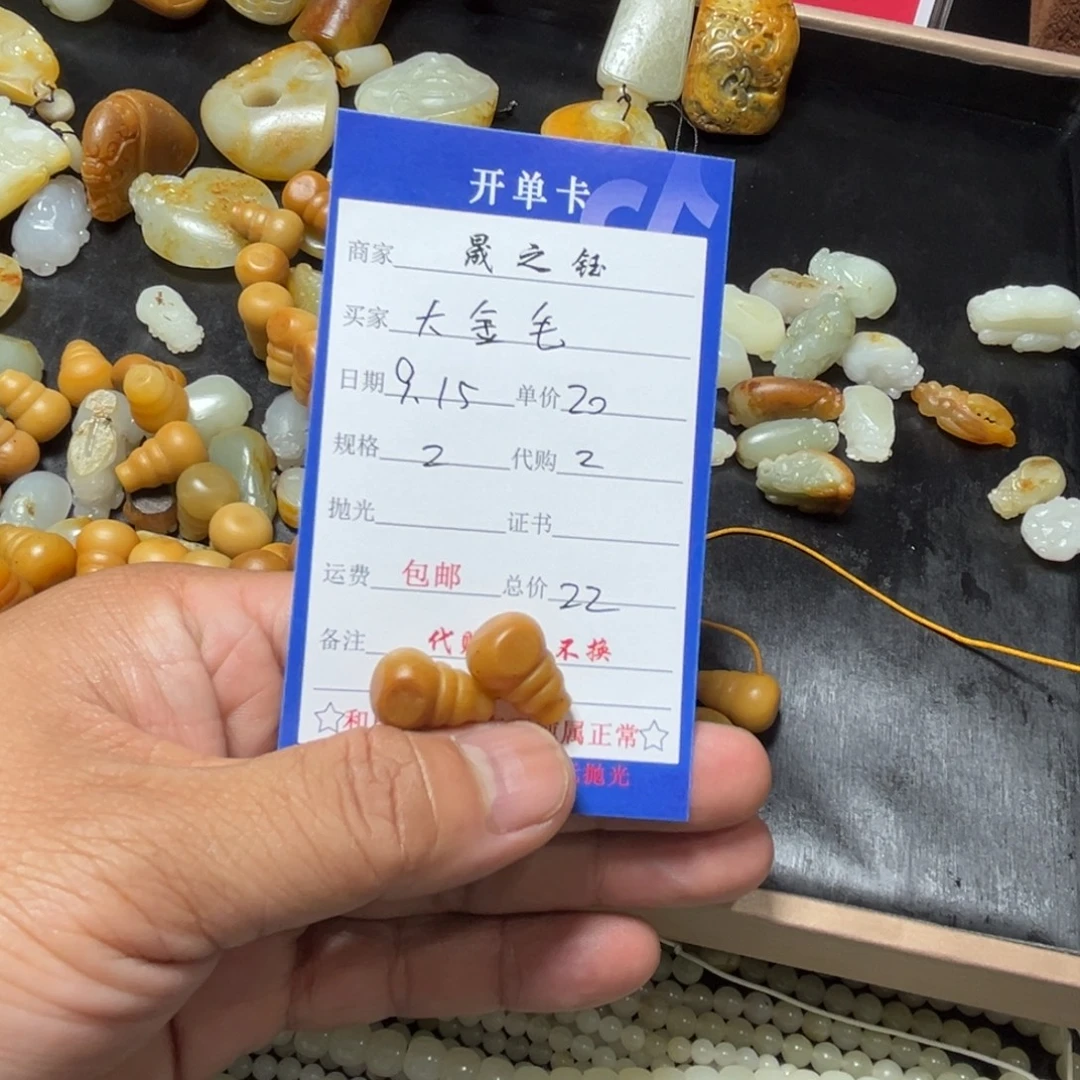 开单卡
商家 晟之钰
买家 大金毛
日期 9.15 单价 20
规格 2 代购 2
抛光 证书
运费 包邮 总价 22
备注 代 不换
和 属正常
抛光